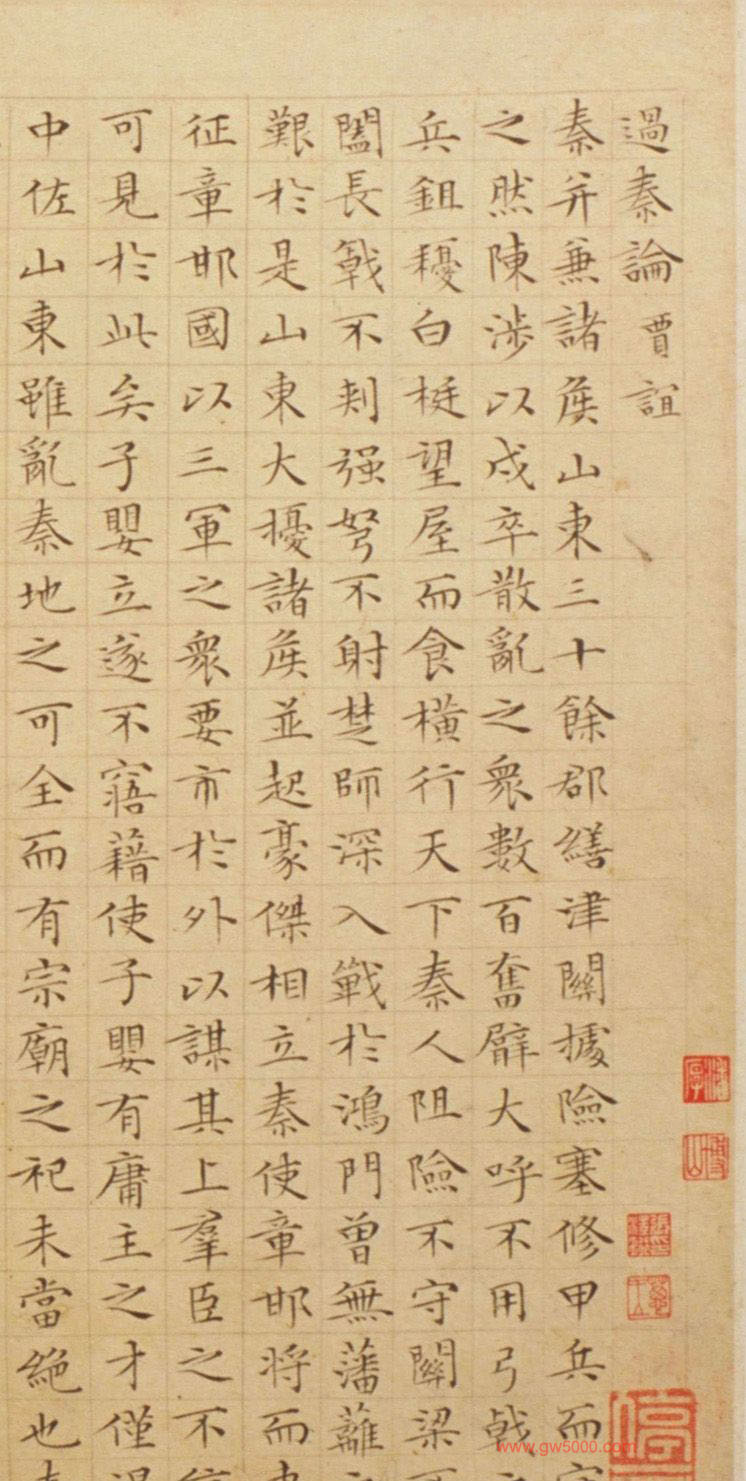 過秦論 賈誼
秦并兼諸侯山東三十餘郡繕津關據險塞修甲兵而守
之然陳涉以戍卒散亂之衆數百奮臂大呼不用弓戟之
兵鉏耰白梃望屋而食橫行天下秦人阻險不守關梁不
闔長戟不刺强弩不射楚師深入戰於鴻門曾無藩蘺之
艱於是山東大擾諸侯並起豪傑相立秦使章邯將而東
征章邯國以三軍之衆要市於外以謀其上羣臣之不信
可見於此矣子嬰立遂不寤藉使子嬰有庸主之才僅得
中佐山東雖亂秦地之可全而有宗廟之祀未當絶也秦
www.gw5000.com